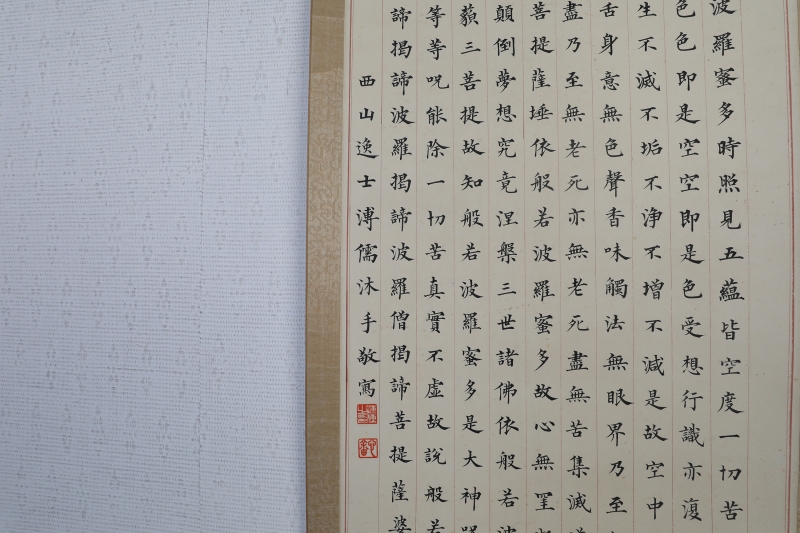 波羅蜜多時照見五蘊皆空度一切苦
色色即是空空即是色受想行識亦復
生不滅不垢不浄不增不減是故空中
舌身意無色聲香味觸法無眼界乃至
盡乃至無老死亦無老死盡無苦集滅
菩提薩埵依般若波羅蜜多故心無罣
顛倒夢想究竟涅槃三世諸佛依般若波
藐三菩提故知般若波羅蜜多是大神咒
等等咒能除一切苦真實不虛故說般若
諦揭諦波羅揭諦波羅僧揭諦菩提薩婆
西山逸士溥儒沐手敬寫